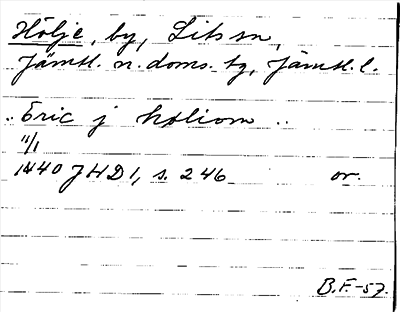 Hölje, by, Lits sn,
Jämtl. n. doms. tg, Jämtl. l.
.. Eric j høliom ..
11/1
1440 JHD 1, s. 246 or.
B.F.-57.